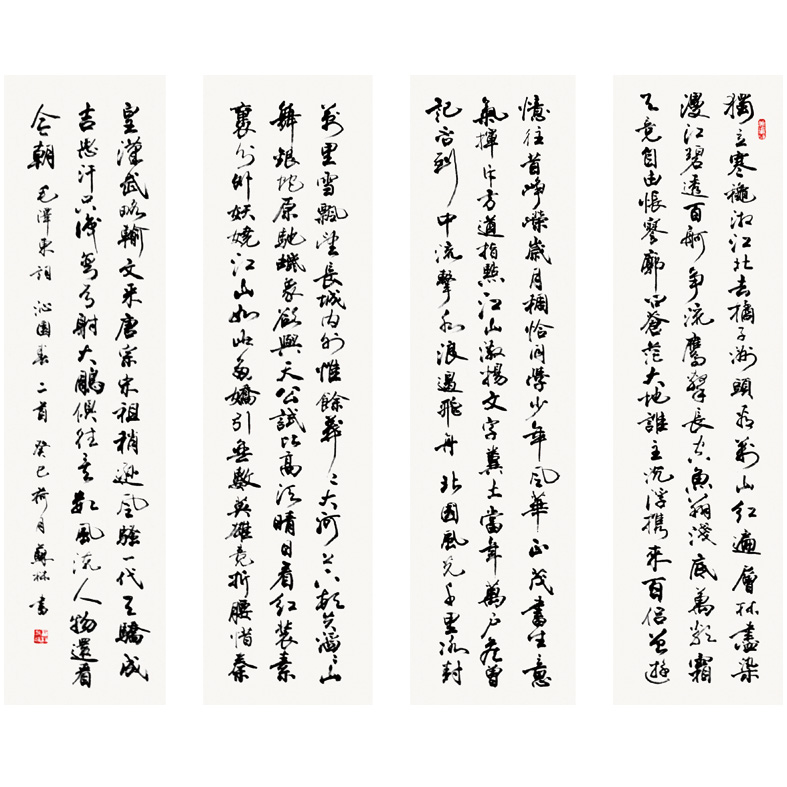 獨立寒穐湘江北去橘子洲頭看萬山红遍層林盡染
漫江碧透百舸争流鷹擊長空魚翔淺底萬類霜
天竞自由悵寥廓问蒼茫大地誰主沉浮携來百侣曾遊
憶往昔崢嶸歲月稠恰同學少年風華正茂書生意
氣揮斥方遒指點江山激揚文字糞土當年萬户矦曾
記否到中流擊水浪遏飛舟 北國風光千里冰封
萬里雪飄望長城内外惟餘莽〻大河上下頓失滔〻山
舞銀蛇原馳蠟象欲與天公試比高須晴日看红裝素
裹分外妖嬈江山如此多嬌引無數英雄竞折腰惜秦
皇漢武略輸文采唐宗宋祖稍遜風騷一代天驕成
吉思汗只識彎弓射大鵰俱往矣數風流人物還看
今朝 毛澤東詞沁園春二首 癸巳荷月蘇林書